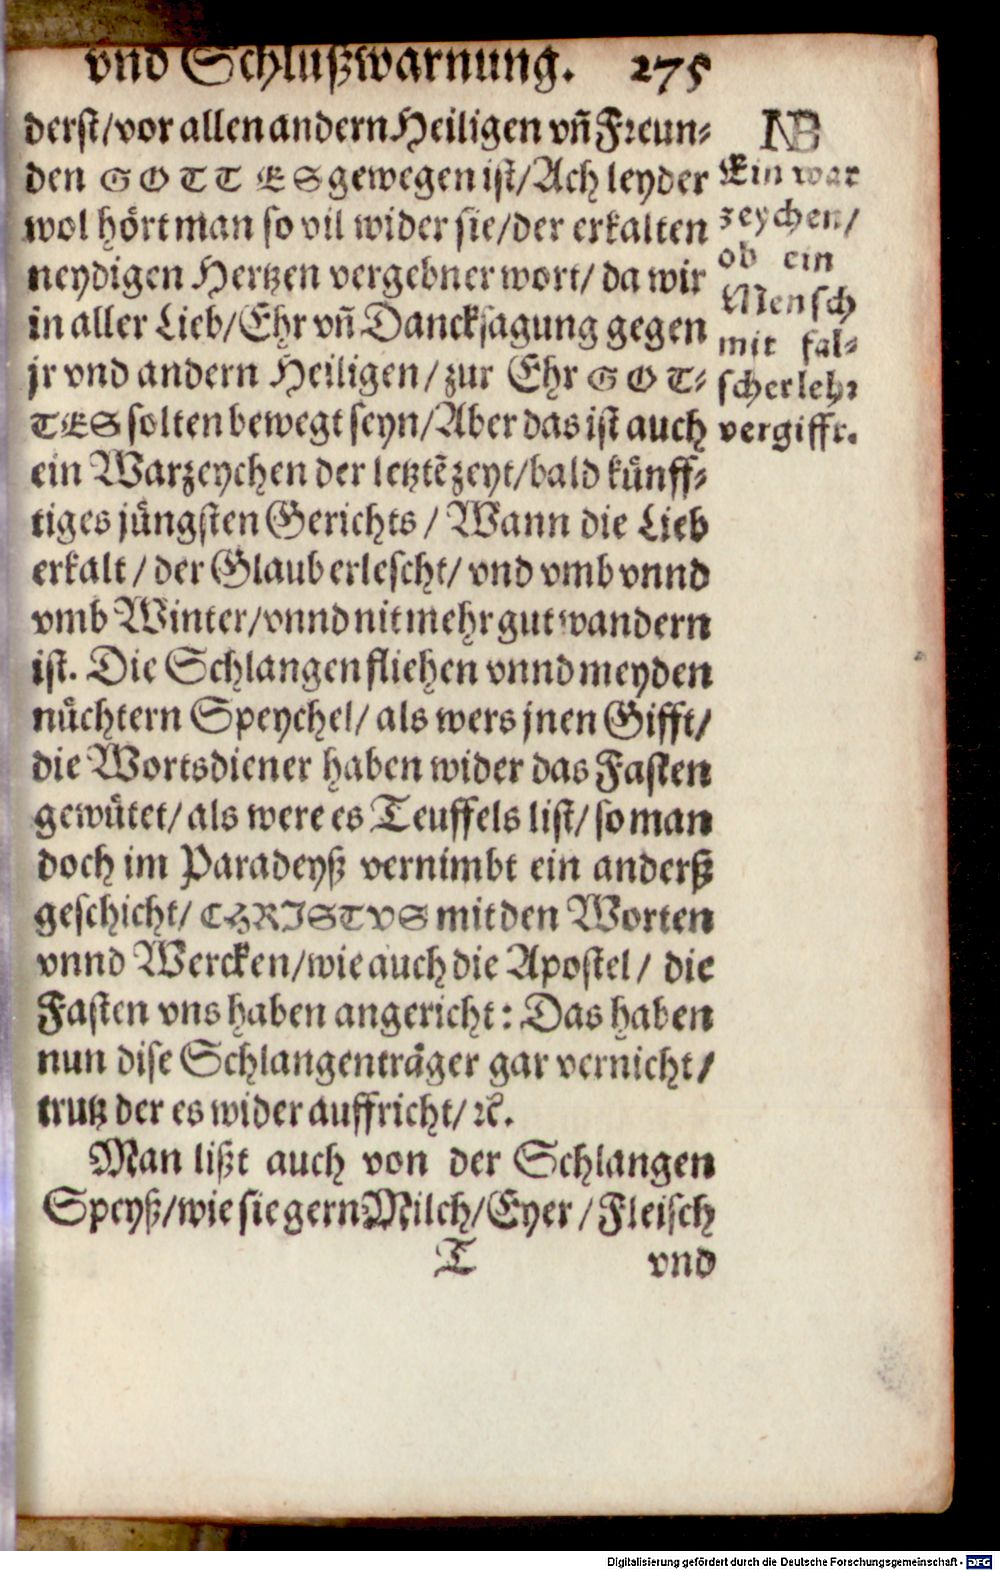 vnd Schlußwarnung. 275
derst/vor allen andern Heiligen vñ Freun⸗
den GOTTES gewegen ist/Ach leyder
wol hört man so vil wider sie/der erkalten
neydigen Hertzen vergebner wort/ da wir
in aller Lieb/Ehr vñ Dancksagung gegen
jr vnd andern Heiligen/ zur Ehr GOT⸗
TES solten bewegt seyn/Aber das ist auch
ein Warzeychen der letztẽ zeyt/bald künff⸗
tiges jüngsten Gerichts / Wann die Lieb
erkalt / der Glaub erlescht/ vnd vmb vnnd
vmb Winter/vnnd nit mehr gut wandern
ist. Die Schlangen fliehen vnnd meyden
nüchtern Speychel/ als wers jnen Gifft/
die Wortsdiener haben wider das Fasten
gewütet/ als were es Teuffels list/ so man
doch im Paradeyß vernimbt ein anderß
geschicht/ CHRISTVS mit den Worten
vnnd Wercken/wie auch die Apostel/ die
Fasten vns haben angericht: Das haben
nun dise Schlangenträger gar vernicht/
trutz der es wider auffricht/ ꝛc.
Man lißt auch von der Schlangen
Speyß/wie sie gern Milch/Eyer / Fleisch
T vnd
NB
Ein war
zeychen/
ob ein
Mensch
mit fal⸗
scher lehr
vergifft.
Digitalisierung gefördert durch die Deutsche Forschungsgemeinschaft - DFG